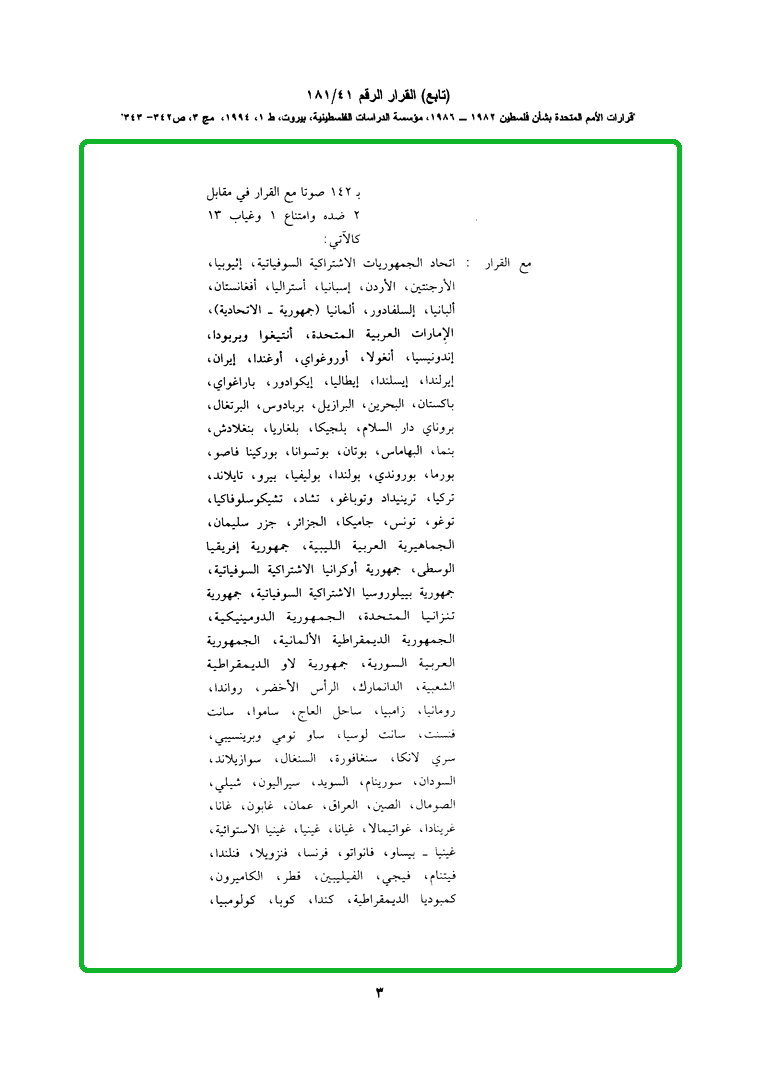 (تابع) القرار الرقم ١٨١/٤١
"قرارات الأمم المتحدة بشأن فلسطين ١٩٨٢ ــ ١٩٨٦، مؤسسة الدراسات الفلسطينية، بيروت، ط ١، ١٩٩٤، مج ٣، ص٣٤٢- ٣٤٣"
بـ ١٤٢ صوتا مع القرار في مقابل
٢ ضده وامتناع ١ وغياب ١٣
كالآتي:
مع القرار : اتحاد الجمهوريات الاشتراكية السوفياتية، إثيوبيا،
الأرجنتين، الأردن، إسبانيا، أستراليا، أفغانستان،
ألبانيا، إلسلفادور، ألمانيا (جمهورية ـ الاتحادية)،
الإمارات العربية المتحدة، أنتيغوا وبربودا،
إندونيسيا، أنغولا، أوروغواي، أوغندا، إيران،
إيرلندا، إيسلندا، إيطاليا، إيكوادور، باراغواي،
باكستان، البحرين، البرازيل، بربادوس، البرتغال،
بروناي دار السلام، بلجيكا، بلغاريا، بنغلادش،
بنما، البهاماس، بوتان، بوتسوانا، بوركينا فاصو،
بورما، بوروندي، بولندا، بوليفيا، بيرو، تايلاند،
تركيا، ترينيداد وتوباغو، تشاد، تشيكوسلوفاكيا،
توغو، تونس، جاميكا، الجزائر، جزر سليمان،
الجماهيرية العربية الليبية، جمهورية إفريقيا
الوسطى، جمهورية أوكرانيا الاشتراكية السوفياتية،
جمهورية بييلوروسيا الاشتراكية السوفياتية، جمهورية
تنزانيا المتحدة، الجمهورية الدومينيكية،
الجمهورية الديمقراطية الألمانية، الجمهورية
العربية السورية، جمهورية لاو الديمقراطية
الشعبية، الدانمارك، الرأس الأخضر، رواندا،
رومانيا، زامبيا، ساحل العاج، ساموا، سانت
فنسنت، سانت لوسيا، ساو تومي وبرينسيبي،
سري لانكا، سنغافورة، السنغال، سوازيلاند،
السودان، سورينام، السويد، سيراليون، شيلي،
الصومال، الصين، العراق، عمان، غابون، غانا،
غرينادا، غواتيمالا، غيانا، غينيا، غينيا الاستوائية،
غينيا ـ بيساو، فانواتو، فرنسا، فنزويلا، فنلندا،
فيتنام، فيجي، الفيليبين، قطر، الكاميرون،
كمبوديا الديمقراطية، كندا، كوبا، كولومبيا،
٣